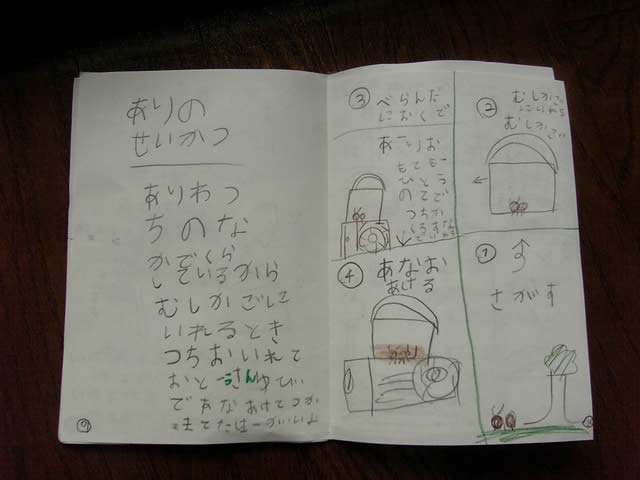 ありの
せいかつ
ありわつ
ちのな
かでくら
しているから
むしかごして
いれるとき
つちおいれて
おとーさんゆびい
であなあけてつか
きてたほーがいいよ
③
べらんだ
におくで
ありお
もて
ひとつ
のてで
つちか
②
むしかご
むしかご
①
さがす
④
あなお
あける